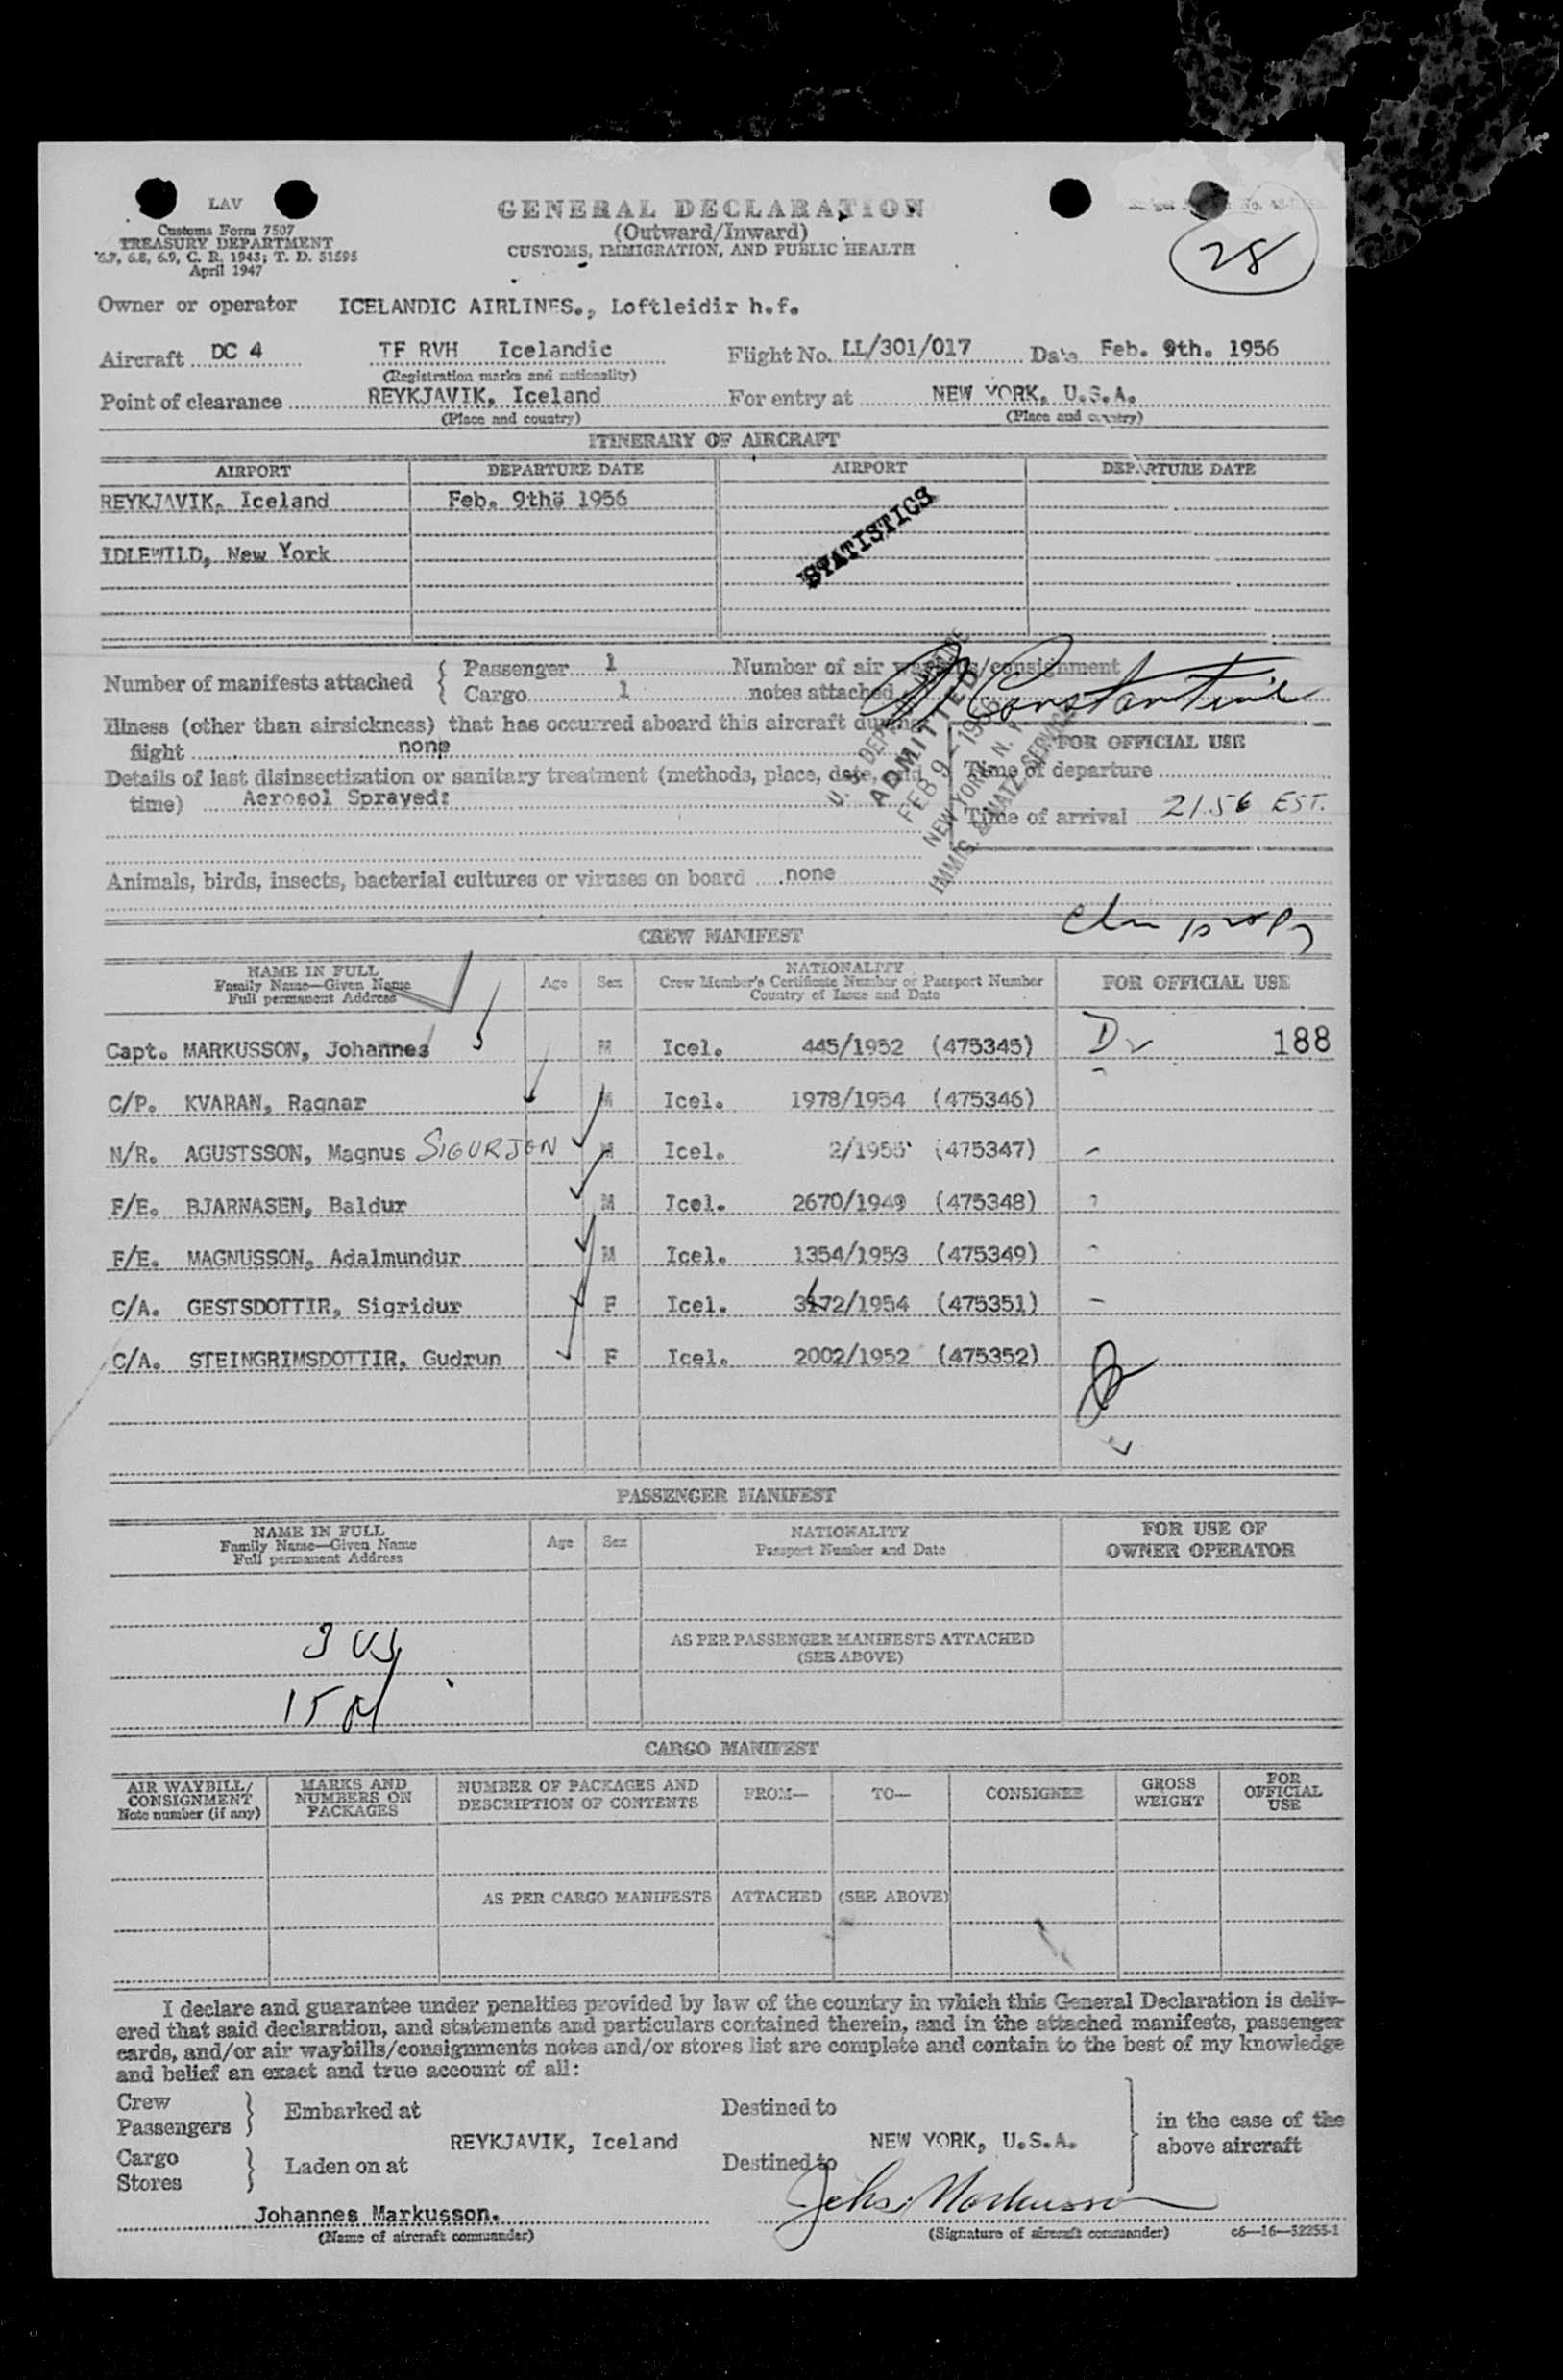 LAV
Customs Form 7507
TREASURY DEPARTMENT
6.7, 6.8, 6.9, C. R. 1943; T. D. 51595
April 1947
GENERAL DECLARATION
(Outward/Inward)
CUSTOMS, IMMIGRATION, AND PUBLIC HEALTH
28
Owner or operator ICELANDIC AIRLINES., Loftleidir h.f.
Aircraft DC 4 TF RVH Icelandic Flight No. LL/301/017 Date Feb. 9th. 1956
(Registration marks and nationality)
Point of clearance REYKJAVIK, Iceland For entry at NEW YORK, U.S.A.
(Place and country) (Place and country)
ITINERARY OF AIRCRAFT
AIRPORT DEPARTURE DATE AIRPORT DEPARTURE DATE
REYKJAVIK, Iceland Feb. 9th 1956
STATISTICS
IDLEWILD, New York
Number of manifests attached { Passenger 1 Number of air waybills/consignment
Cargo 1 notes attached
Constantine
Illness (other than airsickness) that has occurred aboard this aircraft during
flight none
FOR OFFICIAL USE
Details of last disinsectization or sanitary treatment (methods, place, date, and
time) Aerosol Sprayed:
Time of departure
Time of arrival 21.56 EST.
ADMITTED
FEB 9 - 1956
NEW YORK, N. Y.
IMMIG. & NATZ. SERVICE
Animals, birds, insects, bacterial cultures or viruses on board none
CREW MANIFEST
NAME IN FULL
Family Name—Given Name
Full permanent Address
Age Sex
NATIONALITY
Crew Member's Certificate Number or Passport Number
Country of Issue and Date
FOR OFFICIAL USE
Capt. MARKUSSON, Johannes M Icel. 445/1952 (475345) 188
C/P. KVARAN, Ragnar M Icel. 1978/1954 (475346)
N/R. AGUSTSSON, Magnus SIGURJON M Icel. 2/1955 (475347)
F/E. BJARNASEN, Baldur M Icel. 2670/1949 (475348)
F/E. MAGNUSSON, Adalmundur M Icel. 1354/1953 (475349)
C/A. GESTSDOTTIR, Sigridur F Icel. (475351)
C/A. STEINGRIMSDOTTIR, Gudrun F Icel. 2002/1952 (475352)
PASSENGER MANIFEST
NAME IN FULL
Family Name—Given Name
Full permanent Address
Age Sex
NATIONALITY
Passport Number and Date
FOR USE OF
OWNER OPERATOR
AS PER PASSENGER MANIFESTS ATTACHED
(SEE ABOVE)
3 US
15
CARGO MANIFEST
AIR WAYBILL/
CONSIGNMENT
Note number (if any)
MARKS AND
NUMBERS ON
PACKAGES
NUMBER OF PACKAGES AND
DESCRIPTION OF CONTENTS
FROM— TO— CONSIGNEE
GROSS
WEIGHT
FOR
OFFICIAL
USE
AS PER CARGO MANIFESTS ATTACHED (SEE ABOVE)
I declare and guarantee under penalties provided by law of the country in which this General Declaration is deliv-
ered that said declaration, and statements and particulars contained therein, and in the attached manifests, passenger
cards, and/or air waybills/consignments notes and/or stores list are complete and contain to the best of my knowledge
and belief an exact and true account of all:
Crew
Passengers } Embarked at Destined to
REYKJAVIK, Iceland NEW YORK, U.S.A.
in the case of the
above aircraft
Cargo
Stores } Laden on at Destined to
Johannes Markusson. Johs. Markusson
(Name of aircraft commander) (Signature of aircraft commander) c6—16—52255-1